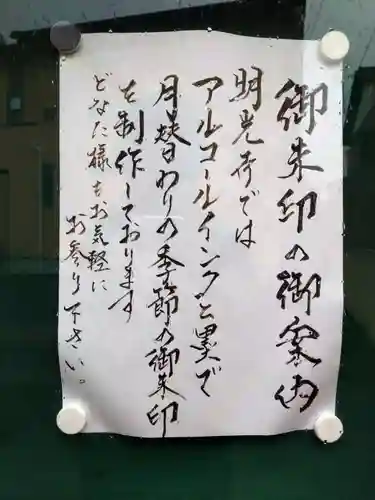 御朱印の御案内
明光寺では
アルコールインクと墨で
月替わりの季節の御朱印
を制作しております
どなた様もお気軽に
お参り下さい。